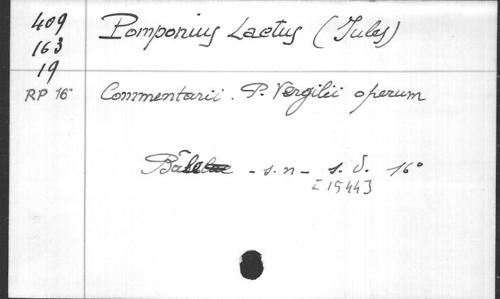 409
163
19
RP 16°
Pomponius Laetus (Jules)
Commentarii. P. Vergilii operum
Bâle - s. n - s. d. 16°
[1544]